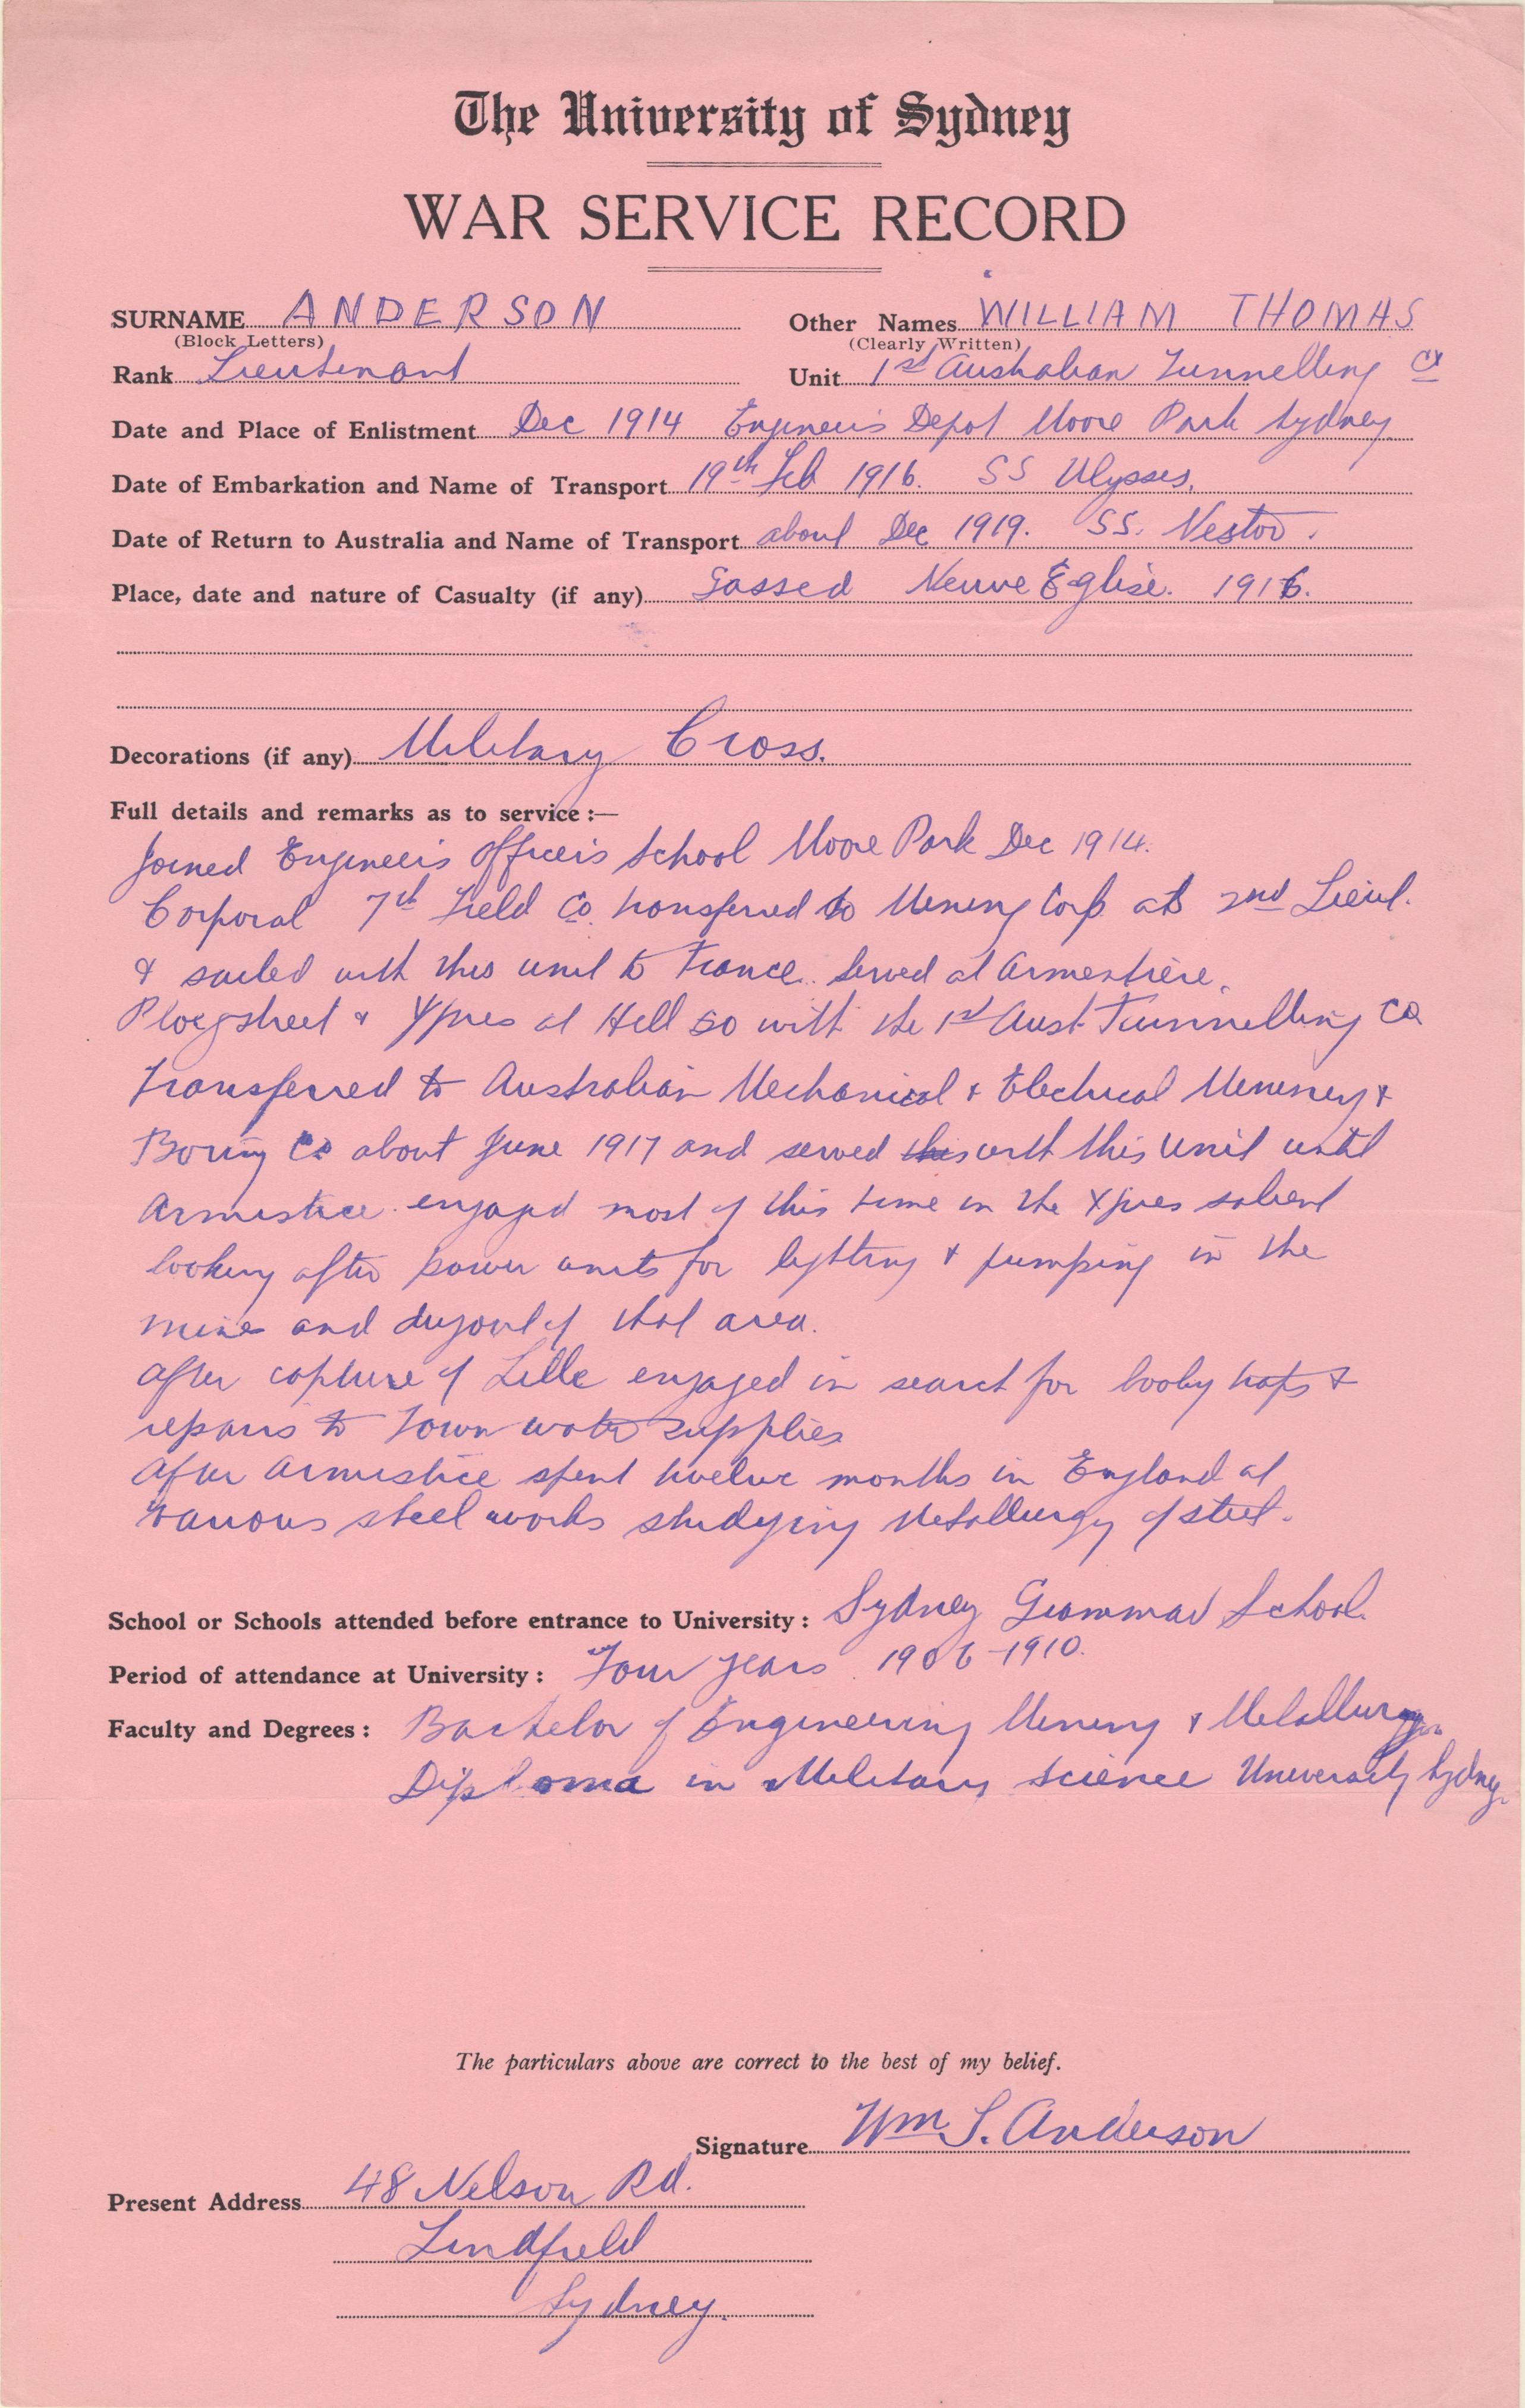 The University of Sydney
WAR SERVICE RECORD
SURNAME ANDERSON Other Names WILLIAM THOMAS
(Block Letters) (Clearly Written)
Rank Lieutenant Unit 1st Australian Tunnelling Cy
Date and Place of Enlistment Dec 1914 Engineers Depot Moore Park Sydney
Date of Embarkation and Name of Transport 19th Feb 1916. SS Ulysses.
Date of Return to Australia and Name of Transport about Dec 1919. SS. Nestor.
Place, date and nature of Casualty (if any) Gassed Neuve Eglise. 1916.
Decorations (if any) Military Cross.
Full details and remarks as to service :—
Joined Engineers Officers School Moore Park Dec 1914.
Corporal 7th Field Co. transferred to Mining Corp as 2nd Lieut.
& sailed with this unit to France. Served at Armentiere,
Ploegstreet & Ypres at Hill 60 with the 1st Aust Tunnelling Co
Transferred to Australian Mechanical & Electrical Mining &
Boring Co about June 1917 and served this with this Unit until
Armistice engaged most of this time in the Ypres salient
looking after power units for lighting & pumping in the
mines and dugouts of that area.
After capture of Lille engaged in search for booby traps &
repairs to Town water supplies
After Armistice spent twelve months in England at
various steel works studying Metallurgy of steel.
School or Schools attended before entrance to University : Sydney Grammar School.
Period of attendance at University : Four years 1906-1910.
Faculty and Degrees : Bachelor of Engineering Mining & Metallurgy
Diploma in Military Science University Sydney.
The particulars above are correct to the best of my belief.
Signature Wm T. Anderson
Present Address 48 Nelson Rd.
Lindfield
Sydney.